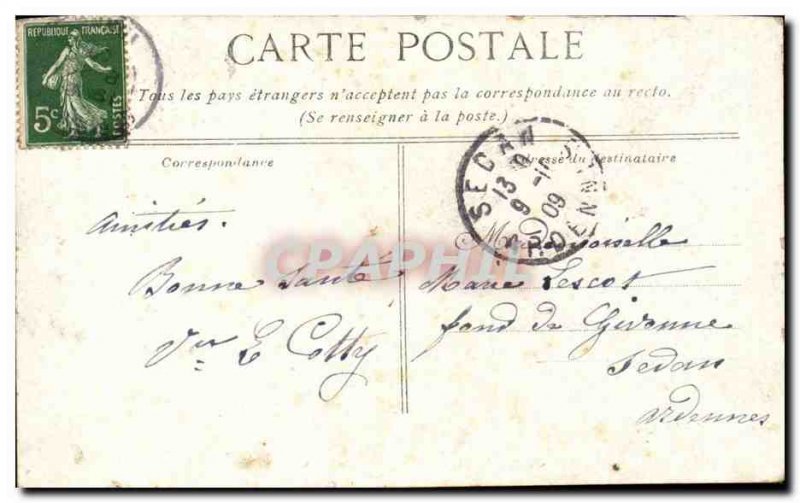 REPUBLIQUE FRANÇAISE
POSTES
5c
CARTE POSTALE
Tous les pays étrangers n'acceptent pas la correspondance au recto.
(Se renseigner à la poste.)
Correspondance
Adresse du destinataire
SEDAN
ARDENNES
13
9 - 11
09
Amitiés.
Bonne Santé
Vve E Cotty
Mademoiselle
Marie Lescot
fond de Givonne
Sedan
Ardennes
CPAPHIL